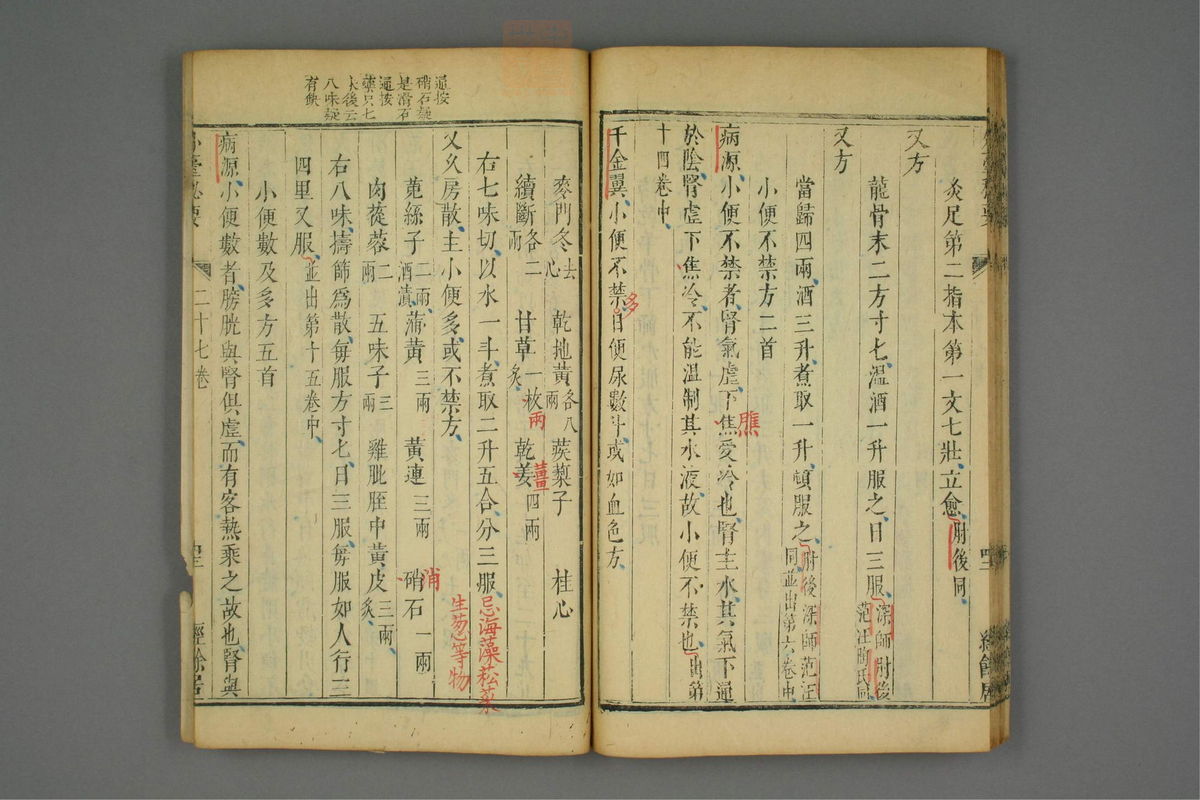 灸足第二指本第一文七壯立愈肘後同
又方
龍骨末二方寸匕溫酒一升服之日三服深師肘後范汪陶氏同
又方
當歸四兩酒三升煮取一升頓服之肘後深師范汪同並出第六卷中
小便不禁方二首
病源小便不禁者腎氣虛下焦受冷也腎主水其氣下通
膲
於陰腎虛下焦冷不能溫制其水液故小便不禁也出第
十四卷中
千金翼小便不禁日便尿數斗或如血色方
多
麥門冬去心 乾地黃各八兩 蒺䔧子 桂心
續斷各二兩 甘草一枚炙 乾姜四兩
兩
薑
右七味切以水一斗煮取二升五合分三服
忌海藻菘菜
生葱等物
又久房散主小便多或不禁方
菟絲子二兩酒漬 蒲黃三兩 黃連三兩 硝石一兩
消
肉蓯蓉二兩 五味子三兩 雞肶胵中黃皮三兩炙
右八味擣篩爲散每服方寸匕日三服每服如人行三
四里又服並出第十五卷中
小便數及多方五首
病源小便數者膀胱與腎俱虛而有客熱乘之故也腎與
外臺秘要 二十七卷 經餘居
遥按
硝石疑
是滑石
遥按
藥只七
味後云
八味疑
有缺